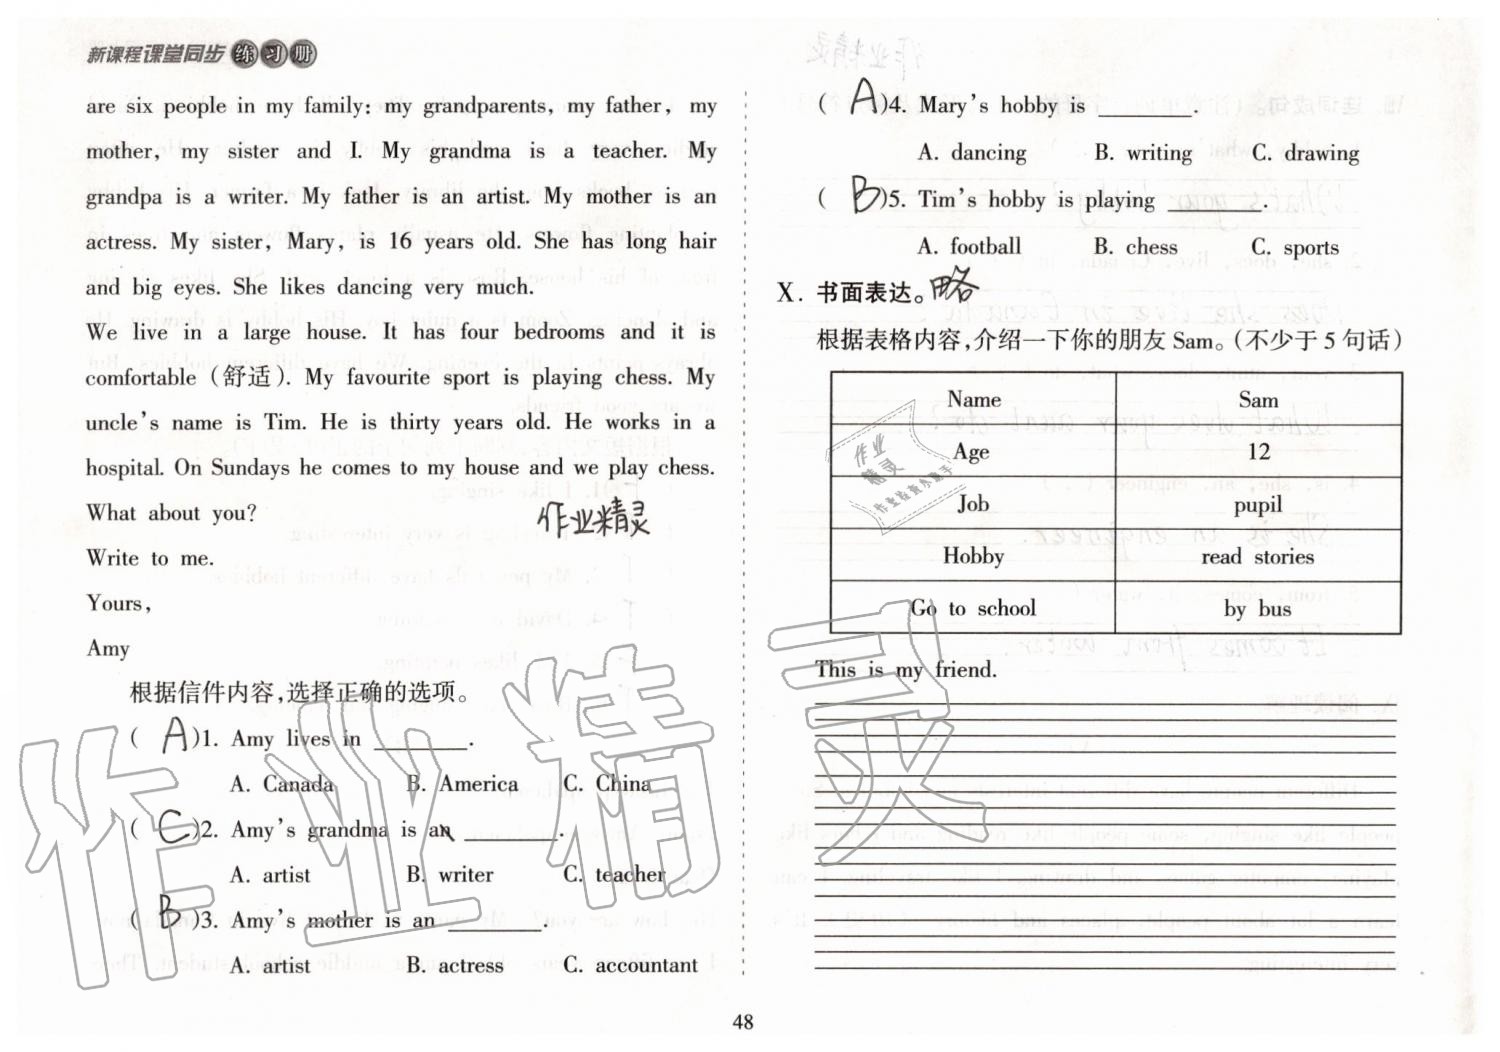 新课程课堂同步练习册
are six people in my family: my grandparents, my father, my
mother, my sister and I. My grandma is a teacher. My
grandpa is a writer. My father is an artist. My mother is an
actress. My sister, Mary, is 16 years old. She has long hair
and big eyes. She likes dancing very much.
We live in a large house. It has four bedrooms and it is
comfortable (舒适). My favourite sport is playing chess. My
uncle's name is Tim. He is thirty years old. He works in a
hospital. On Sundays he comes to my house and we play chess.
What about you?
作业精灵
Write to me.
Yours,
Amy
根据信件内容,选择正确的选项。
( A )1. Amy lives in ________.
A. Canada B. America C. China
( C )2. Amy's grandma is an ________.
A. artist B. writer C. teacher
( B )3. Amy's mother is an ________.
A. artist B. actress C. accountant
( A )4. Mary's hobby is ________.
A. dancing B. writing C. drawing
( B )5. Tim's hobby is playing ________.
A. football B. chess C. sports
X. 书面表达。略
根据表格内容,介绍一下你的朋友 Sam。(不少于 5 句话)
Name Sam
Age 12
Job pupil
Hobby read stories
Go to school by bus
This is my friend.
作业精灵
作业
精灵
48